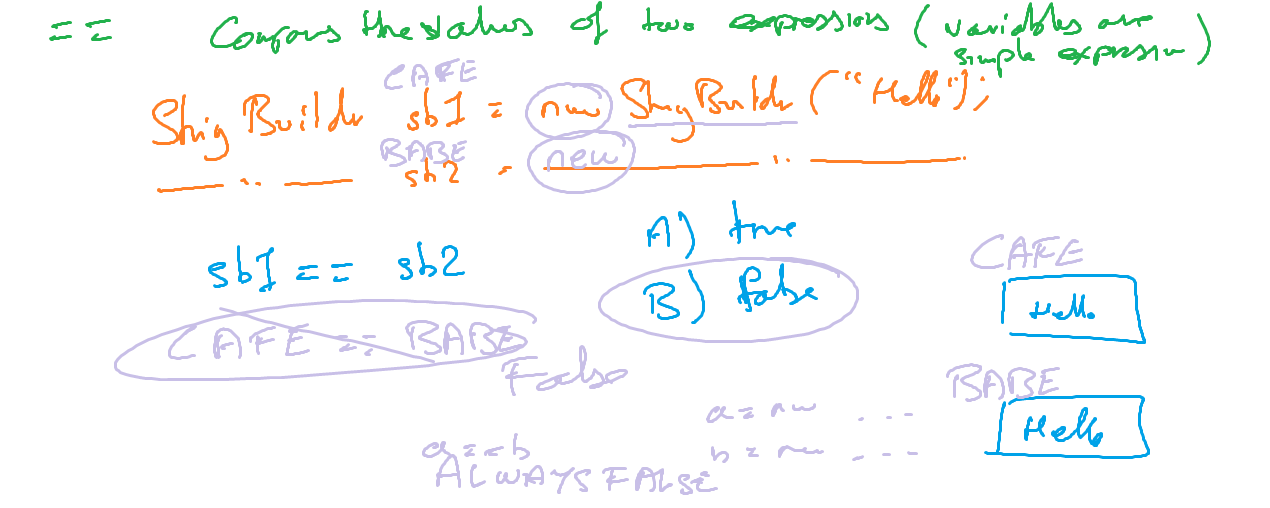 == Compares the values of two expressions (variables are simple expression)
CAFE
StringBuilder sb1 = new StringBuilder("Hello");
BABE
sb2 = new
A) true
sb1 == sb2
B) false
CAFE
Hello
CAFE == BABE
False
BABE
Hello
a = new ...
b = new ...
a == b
ALWAYS FALSE